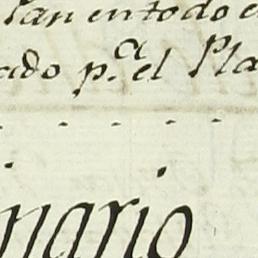 lan en todo e
ado p.ª el Pla
. . . . .
nario